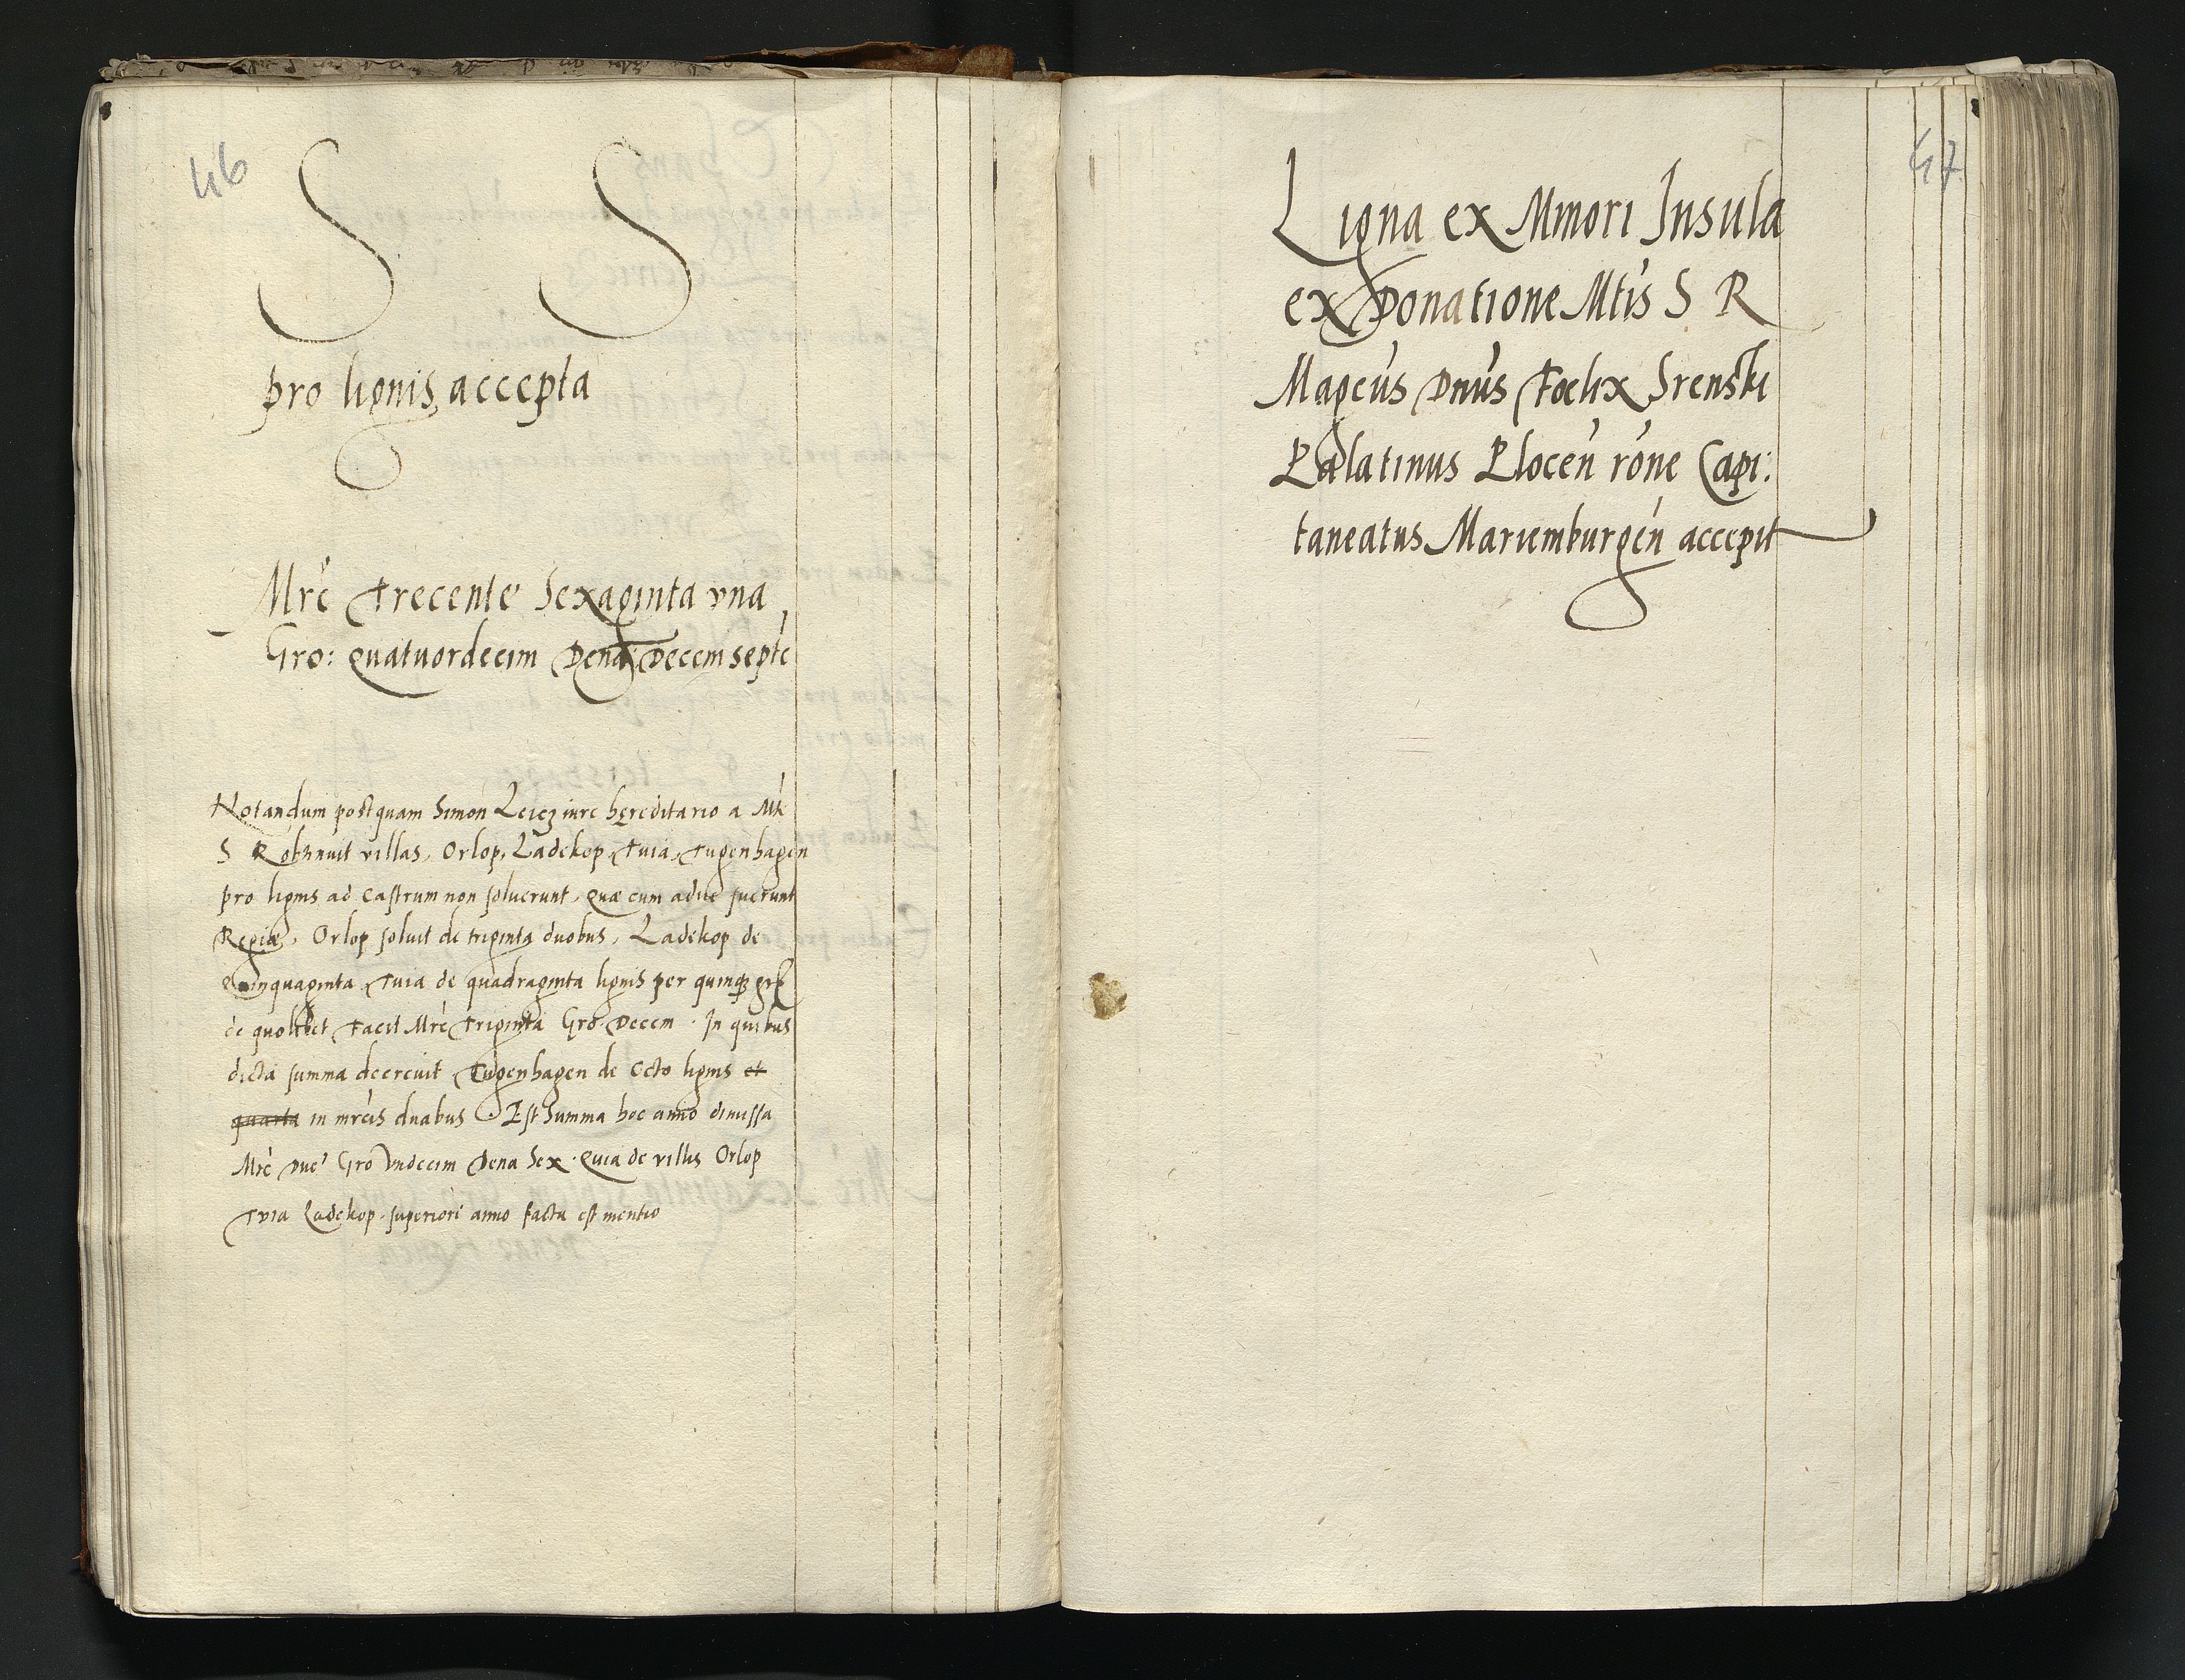 46
S S
pro lignis accepta
Mrc Trecente Sexaginta vna
Gro: quatuordecim Dena: Decem septe
Notandum postquam Simon Leicz iure hereditario a Mte
S R obtinuit villas, Orlop, Ladekop, Tuia, Tugenhagen
pro lignis ad Castrum non soluerunt, quæ cum adhuc fuerunt
Regiæ, Orlop soluit de triginta duobus, Ladekop de
Quinquaginta, Tuia de quadraginta lignis per quinque
de quolibet Facit Mrc Triginta Gro Decem. In quibus
dicta summa decrevit Tugenhagen de Octo lignis et
quarta in mrcis duabus. Est Summa hoc anno dimissa
Mrc Due Gro Vndecim Dena Sex. Quia de villis Orlop
Tuia Ladekop superiori anno facta est mentio
47
Ligna ex Minori Insula
ex Donatione Mtis S R
Magcus Dnus Foelix Srenski
Palatinus Plocen rone Capi:
taneatus Mariemburgen accepit